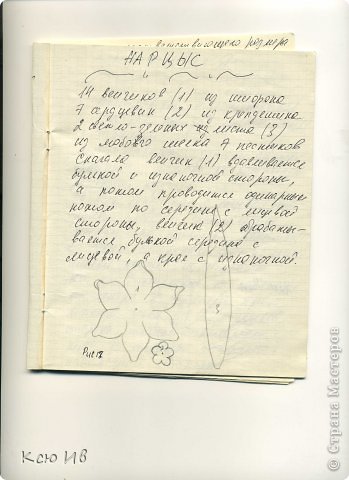 размера
НАРЦЫС
14 венчиков (1) из шторона
7 сердцевин (2) из крепдешина
2 светло-зеленых листа (3)
из любого шелка 7 пестиков
Сначала венчик (1) вдавливается
булькой с изнаночной стороны,
а потом проводится одинарным
ножом по середине с лицевой
стороны, венчик (2) обрабаты-
вается булькой середина с
лицевой, а края с изнаночной.
1
2
3
Рис 12
Ксю ИВ
© Страна Мастеров